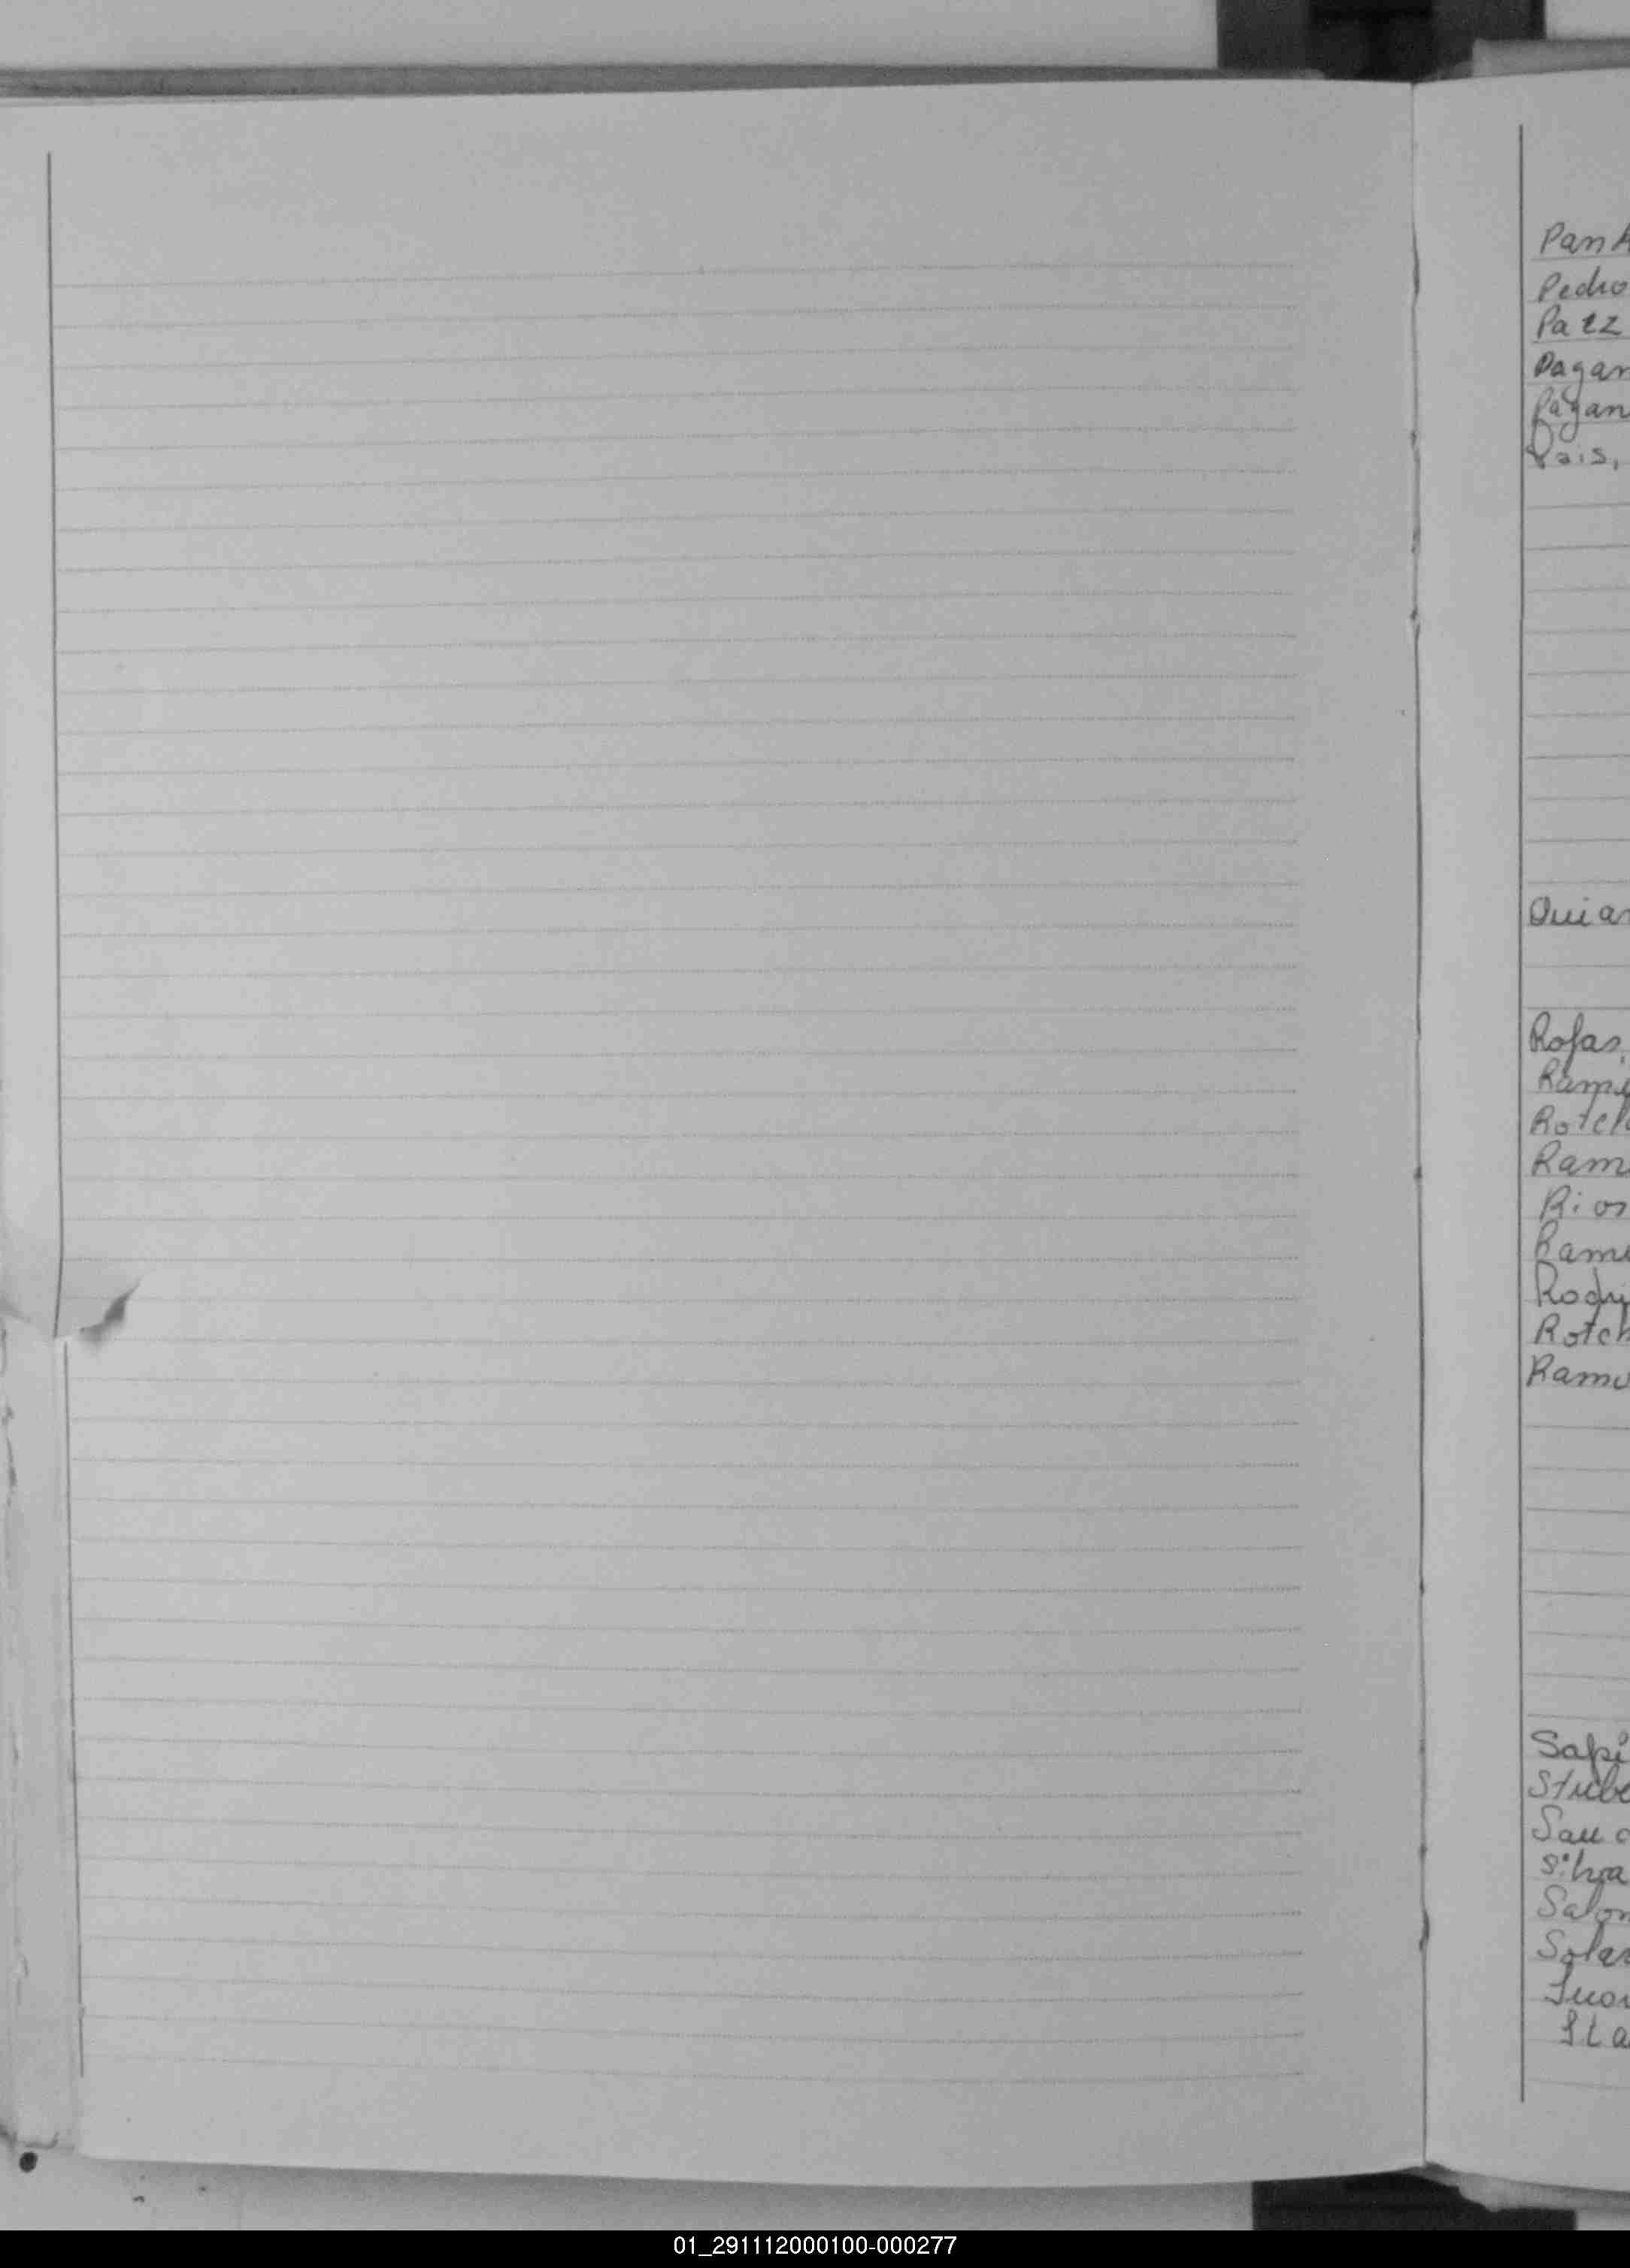 Pant
Pedro
Patz
Pagan
Pagan
Pais,
Quiar
Rojas,
Rami
Rotel
Ram
Rios
Rami
Rodri
Rotch
Rami
Sapi
Stube
Sau
Silva
Salom
Solar
Sta
01_291112000100-000277